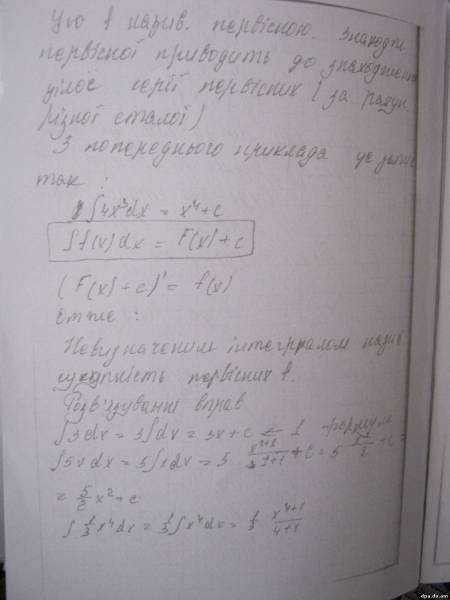 Цю f назив. первісною. Знаходж.
первісної приводить до знаходження
цілої серії первісних (за рахун.
різної сталої)
З попереднього приклада це запис
так:
∫4x³dx = x⁴+c
∫f(x)dx = F(x)+c
(F(x)+c)' = f(x)
Отже:
Невизначеним інтегралом назив
сукупність первісних f.
Розв'язування вправ
∫3dx = 3∫dx = 3x+c ← 1 формула
∫5xdx = 5∫xdx = 5 x¹⁺¹/1+1 + c = 5 x²/2 + c =
= 5/2 x²+c
∫1/3 x⁴dx = 1/3 ∫x⁴dx = 1/3 x⁴⁺¹/4+1
dpa.do.am